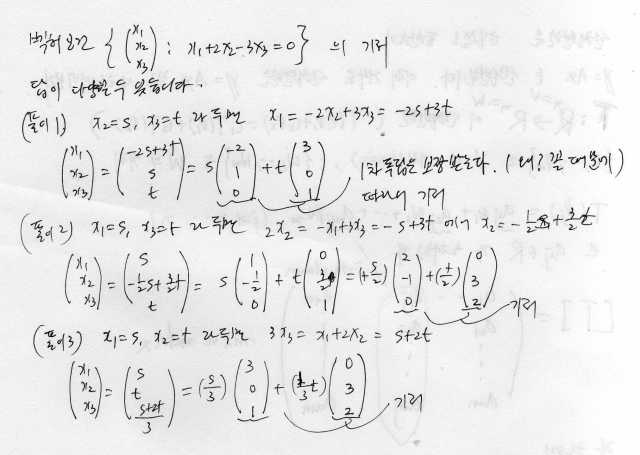 벡터공간 { (x₁ x₂ x₃) : x₁+2x₂-3x₃=0 } 의 기저
답이 다양할 수 있습니다.
(풀이1) x₂=s, x₃=t 라 두면 x₁=-2x₂+3x₃=-2s+3t
(x₁ x₂ x₃) = (-2s+3t s t) = s(-2 1 0) + t(3 0 1) 1차독립은 보장받는다. (왜? 꼴 때문에)
따라서 기저
(풀이2) x₁=s, x₃=t 라 두면 2x₂=-x₁+3x₃=-s+3t 에서 x₂=-1/2s+3/2t
(x₁ x₂ x₃) = (s -1/2s+3/2t t) = s(1 -1/2 0) + t(0 3/2 1) = (+s/2)(2 -1 0) + (t/2)(0 3 2) 기저
(풀이3) x₁=s, x₂=t 라 두면 3x₃=x₁+2x₂=s+2t
(x₁ x₂ x₃) = (s t s+2t/3) = (s/3)(3 0 1) + (1/3t)(0 3 2) 기저